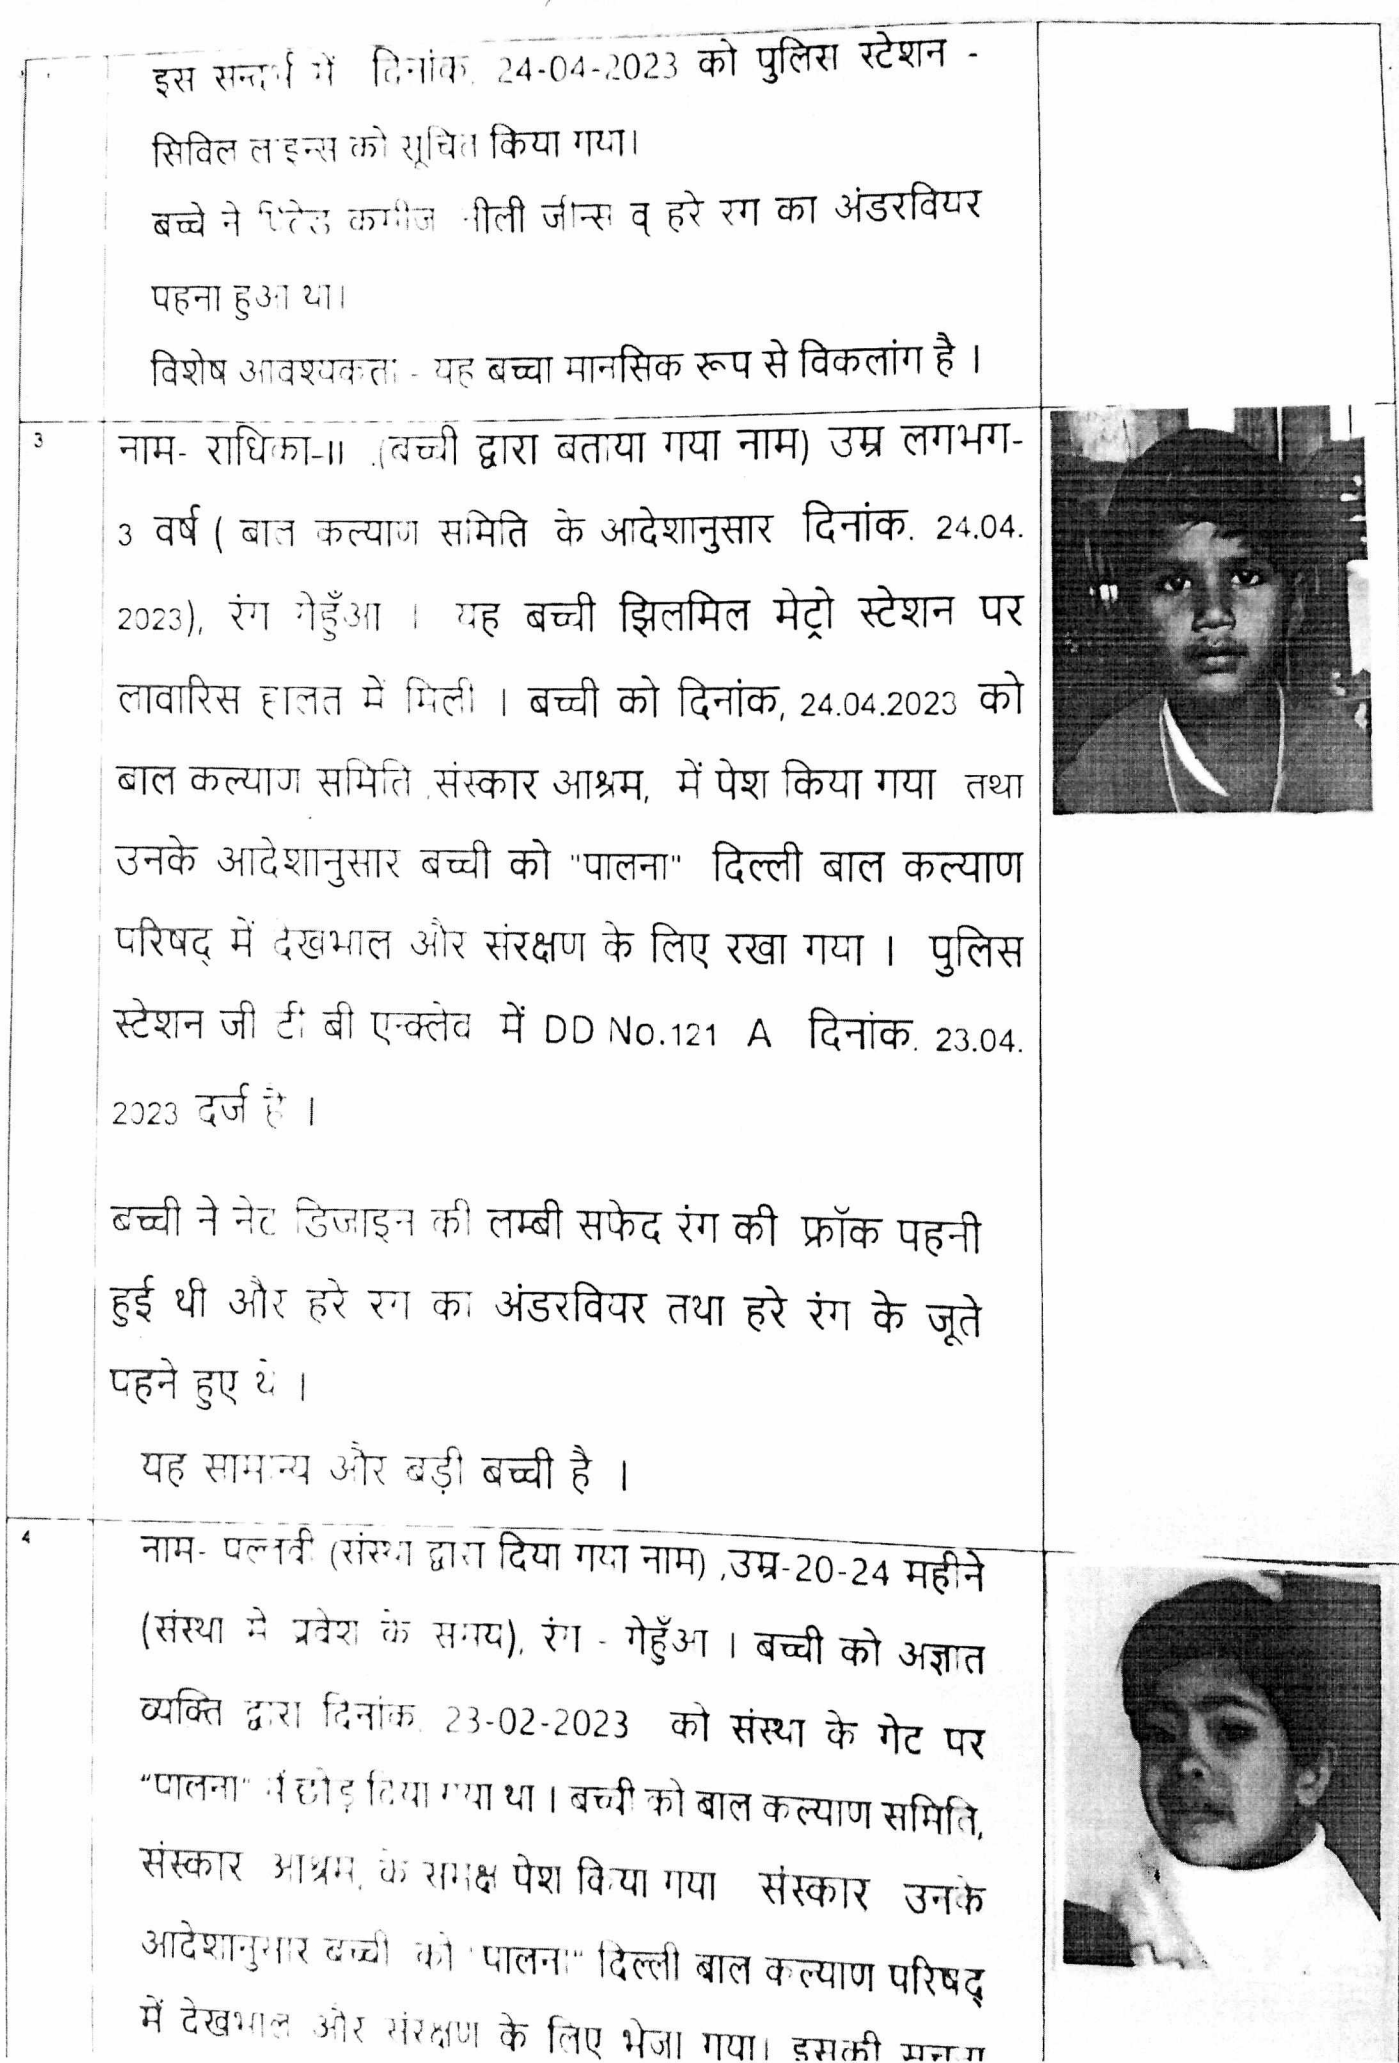 इस सन्दर्भ में दिनांक. 24-04-2023 को पुलिस स्टेशन -
सिविल लाइन्स को सूचित किया गया।
बच्चे ने प्रिंटेड कमीज नीली जीन्स व् हरे रंग का अंडरवियर
पहना हुआ था।
विशेष आवश्यकता - यह बच्चा मानसिक रूप से विकलांग है ।
3
नाम- राधिका-II (बच्ची द्वारा बताया गया नाम) उम्र लगभग-
3 वर्ष ( बाल कल्याण समिति के आदेशानुसार दिनांक. 24.04.
2023), रंग गेहुँआ । यह बच्ची झिलमिल मेट्रो स्टेशन पर
लावारिस हालत में मिली । बच्ची को दिनांक, 24.04.2023 को
बाल कल्याण समिति ,संस्कार आश्रम, में पेश किया गया तथा
उनके आदेशानुसार बच्ची को "पालना" दिल्ली बाल कल्याण
परिषद् में देखभाल और संरक्षण के लिए रखा गया । पुलिस
स्टेशन जी टी बी एन्क्लेव में DD No.121 A दिनांक. 23.04.
2023 दर्ज है ।
बच्ची ने नेट डिजाइन की लम्बी सफेद रंग की फ्रॉक पहनी
हुई थी और हरे रंग का अंडरवियर तथा हरे रंग के जूते
पहने हुए थे ।
यह सामान्य और बड़ी बच्ची है ।
4
नाम- पल्लवी (संस्था द्वारा दिया गया नाम) ,उम्र-20-24 महीने
(संस्था मे प्रवेश के समय), रंग - गेहुँआ । बच्ची को अज्ञात
व्यक्ति द्वारा दिनांक. 23-02-2023 को संस्था के गेट पर
"पालना" में छोड़ दिया गया था । बच्ची को बाल कल्याण समिति,
संस्कार आश्रम, के समक्ष पेश किया गया संस्कार उनके
आदेशानुसार बच्ची को "पालना" दिल्ली बाल कल्याण परिषद्
में देखभाल और संरक्षण के लिए भेजा गया। इसकी